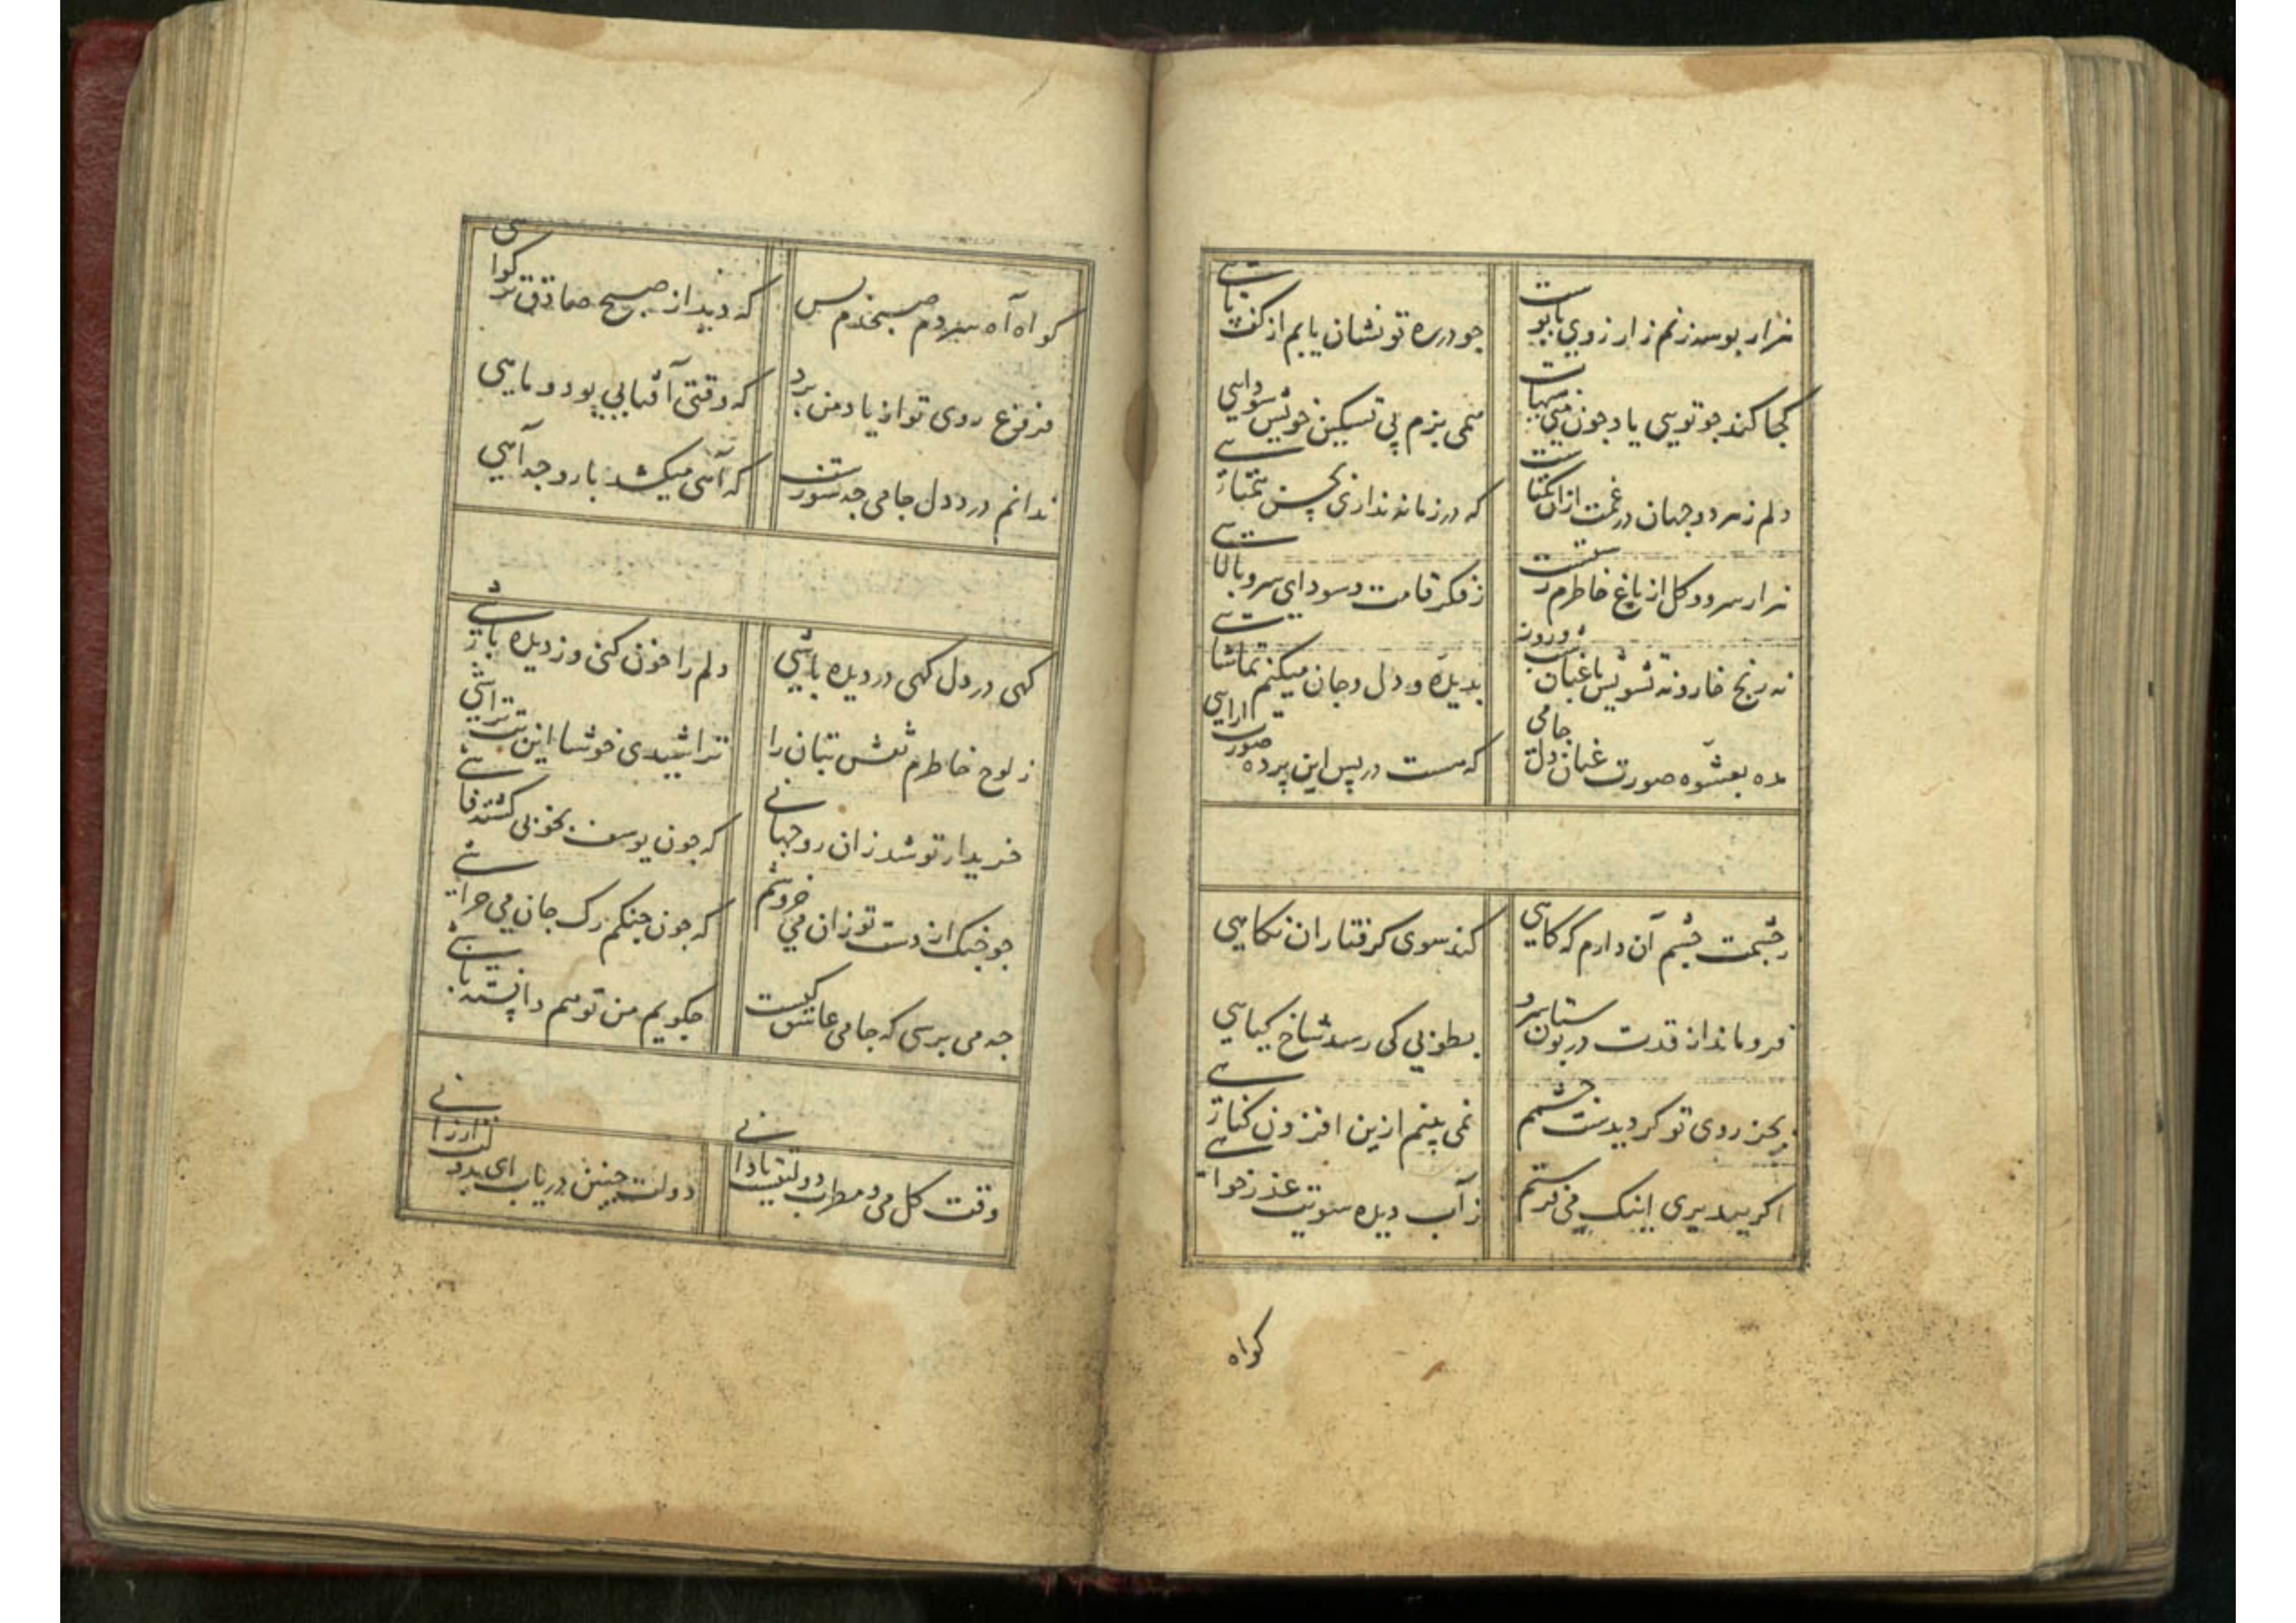 هزار بوسه زنم ز ارزوی پابوست جو در ره تو نشان یابم از کف پایی
کجا کند جو تویی یاد جون منی هیهات همی پزم پی تسکین خویش سودایی
دلم ز هر دو جهان در غمت ازان یکتاست که در زمانه نداری بحسن همتایی
هزار سرو و کل از باغ خاطرم رستست ز فکر قامت و سودای سرو بالایی
نه رنج خار و نه تشویش باغبان و درون بدیده و دل و جان میکنم تماشایی
مده بعشوه صورت عنان دل جامی که هست در پس این پرده صورت ارایی
ز چشمت چشم آن دارم که کاهی کند سوی کرفتاران نکاهی
فروماند از قدت در بوستان سرو بطوبی کی رسد شاخ کیاهی
بجز روی تو کر دیدست چشمم نمی بینم ازین افزون کناهی
اکر بپذیری اینک می فرستم ز آب دیده سویت عذرخواهی
کواه
کواه آه سردم صبحدم بس که دید از صبح صادق تر کواهی
فروغ روی تو از یاد من برد که وقتی آفتابی بود و ماهی
ندانم درد دل جامی جه سورست که آهی میکشد باز و جه آهی
کهی در دل کهی در دیده باشی دلم را خون کنی وز دیده پاشی
ز لوح خاطرم نقش بتان را تراشیدی خوشا این بت تراشی
خریدار تو شد زان رو جهانی که جون یوسف بخوبی کشته فاشی
جو جنک از دست تو زان می خروشم که جون جنکم رک جان می خراشی
جه می برسی که جامی عاشق کیست جکویم من تو هم دانسته باشی
وقت کل می و مطرب دولتیست تا دانی دولت جنین دریاب ای بدولت ارزانی